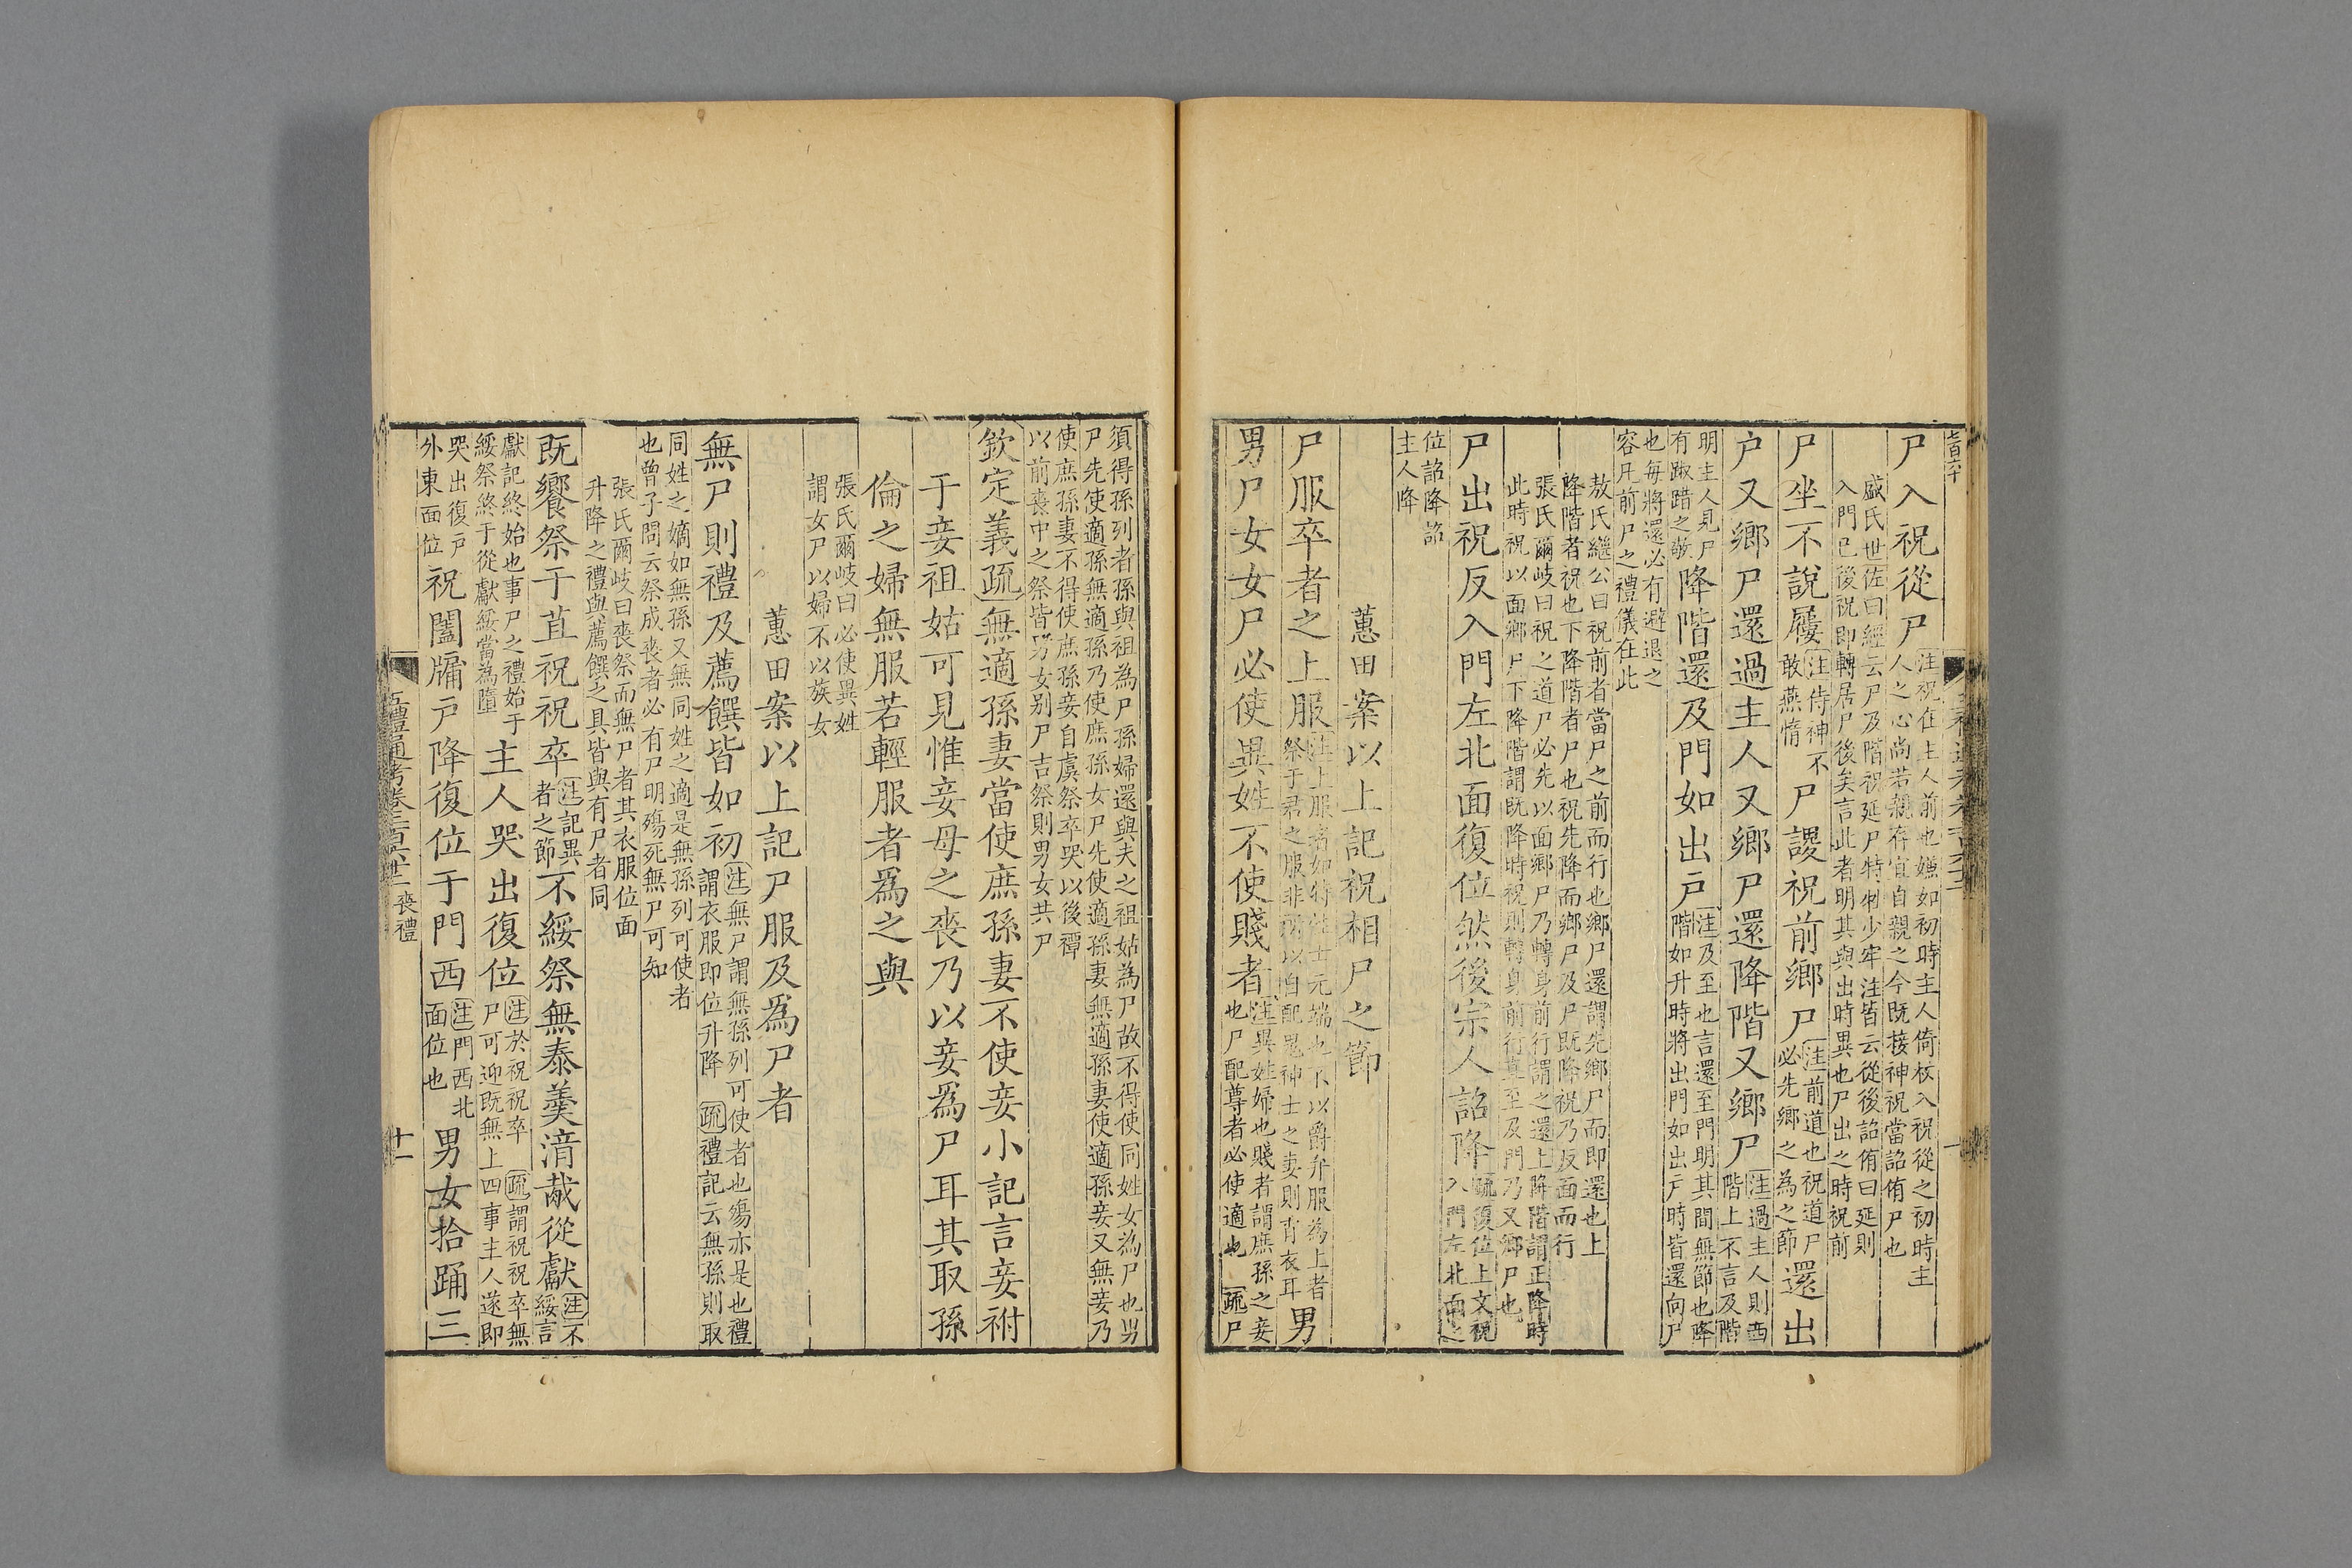 尸入祝從尸注祝在主人前也嫌如初時主人倚杖入祝從之初時主
人之心尚若親存宜自親之今既接神祝當詔侑尸也
盛氏世佐曰經云尸及階祝延尸特牲少牢注皆云從後詔侑曰延則
入門已後祝即轉居尸後矣言此者明其與出時異也尸出之時祝前
尸坐不說屨注侍神不敢燕惰尸謖祝前鄉尸注前道也祝道尸必先鄉之為之節還出
戶又鄉尸還過主人又鄉尸還降階又鄉尸注過主人則西階上不言及階
明主人見尸有踧踖之敬降階還及門如出戶注及至也言還至門明其間無節也降階如升時將出門如出戶時皆還向尸
也每將還必有避退之
容凡前尸之禮儀在此
敖氏繼公曰祝前者當尸之前而行也鄉尸還謂先鄉尸而即還也上
降階者祝也下降階者尸也祝先降而鄉尸及尸既降祝乃反面而行
張氏爾岐曰祝之道尸必先以面鄉尸乃轉身前行謂之還上降階謂正降時
此時祝以面鄉尸下降階謂既降時祝則轉身前行直至及門乃又鄉尸也
尸出祝反入門左北面復位然後宗人詔降疏復位上文祝入門左北面之
位詔降詔
主人降
蕙田案以上記祝相尸之節
尸服卒者之上服注上服者如特牲士元端也不以爵弁服為上者祭于君之服非所以自配鬼神士之妻則宵衣耳男
男尸女女尸必使異姓不使賤者注異姓婦也賤者謂庶孫之妾也尸配尊者必使適也疏尸
須得孫列者孫與祖為尸孫婦還與夫之祖姑為尸故不得使同姓女為尸也男
尸先使適孫無適孫乃使庶孫女尸先使適孫妻無適孫妻使適孫妾又無妾乃
使庶孫妻不得使庶孫妾自虞祭卒哭以後禫
以前喪中之祭皆男女别尸吉祭則男女共尸
欽定義疏無適孫妻當使庶孫妻不使妾小記言妾祔
于妾祖姑可見惟妾母之喪乃以妾爲尸耳其取孫
倫之婦無服若輕服者爲之與
張氏爾岐曰必使異姓
謂女尸以婦不以族女
蕙田案以上記尸服及爲尸者
無尸則禮及薦饌皆如初注無尸謂無孫列可使者也殤亦是也禮謂衣服即位升降疏禮記云無孫則取
同姓之嫡如無孫又無同姓之適是無孫列可使者
也曾子問云祭成喪者必有尸明殤死無尸可知
張氏爾岐曰喪祭而無尸者其衣服位面
升降之禮與薦饌之具皆與有尸者同
既饗祭于苴祝祝卒注記異者之節不綏祭無泰羹湆胾從獻注不綏言
獻記終始也事尸之禮始于綏祭終于從獻綏當為墮主人哭出復位注於祝祝卒疏謂祝祝卒無尸可迎既無上四事主人遂即
哭出復戶外東面位祝闔牖戶降復位于門西注門西北面位也男女拾踊三
五禮通考卷二百六十二喪禮
十一